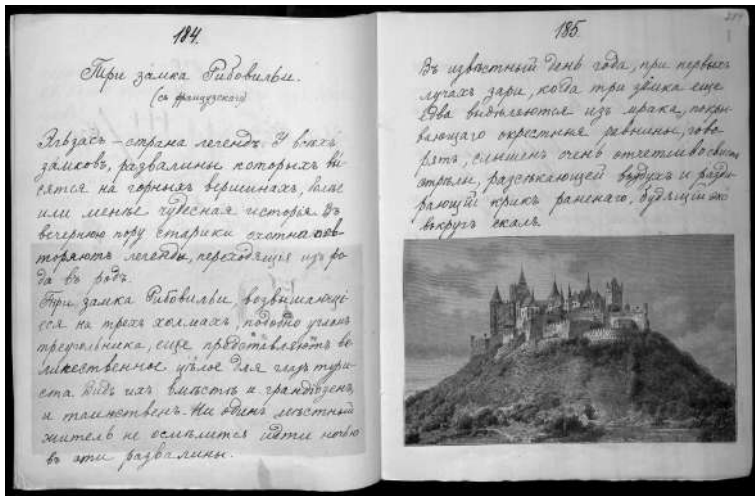 184.
Три замка Рибовилье.
(съ французскаго)
Эльзасъ – страна легендъ. У всѣхъ
замковъ, развалины которыхъ ви-
сятся на горныхъ вершинахъ, болѣе
или менѣе чудесная исторія. Въ
вечернюю пору старики охотно пов-
торяютъ легенды, переходящія изъ ро-
да въ родъ.
Три замка Рибовилье, возвышающі-
еся на трехъ холмахъ, подобно угламъ
треугольника, еще представляютъ ве-
личественное цѣлое для глазъ тури-
ста. Видъ ихъ вмѣстѣ и грандіозенъ,
и таинственъ. Ни одинъ мѣстный
житель не осмѣлится идти ночью
въ эти развалины.
185.
Въ извѣстный день года, при первыхъ
лучахъ зари, когда три замка еще
едва выдѣляются изъ мрака, покры-
вающаго окрестныя равнины, гово-
рятъ, слышенъ очень отчетливо свистъ
стрѣлы, разсѣкающей воздухъ и разди-
рающій крикъ раненаго, будящій эхо
вокругъ скалъ.